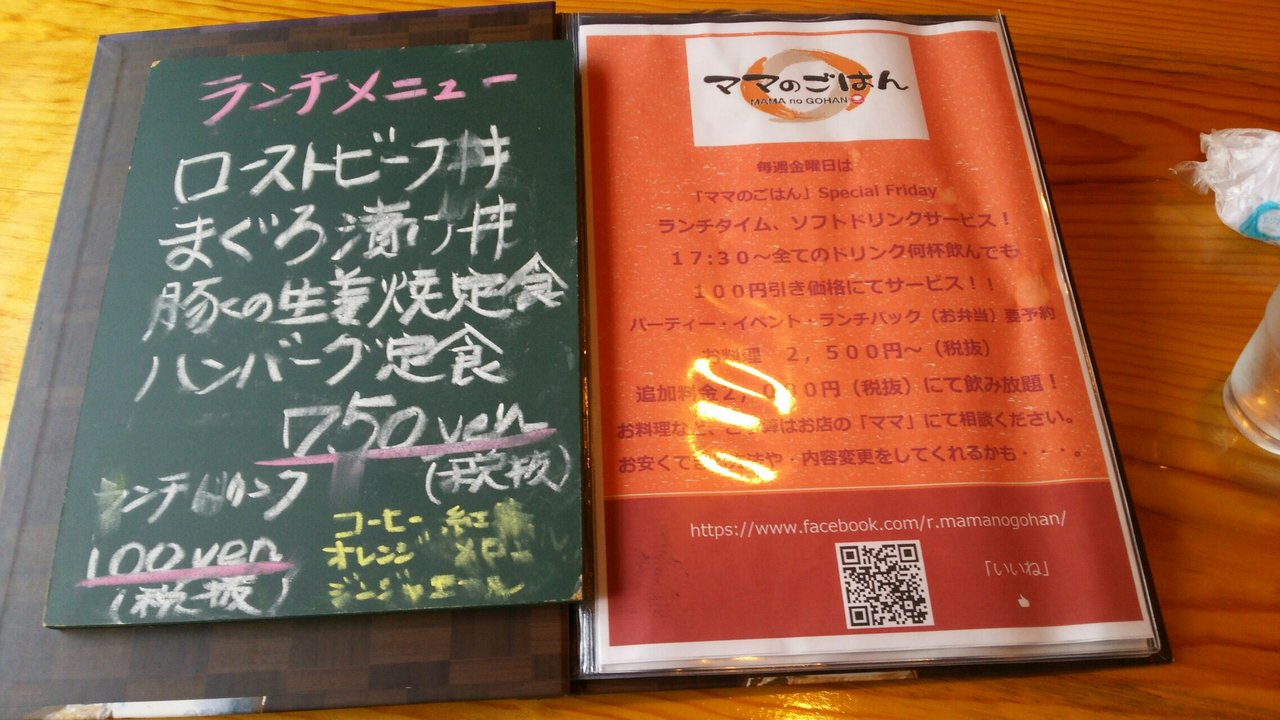 ランチメニュー
ローストビーフ丼
まぐろ漬け丼
豚くの生姜焼定食
ハンバーグ定食
750yen
(税抜)
ランチドリンク
100yen
(税抜)
コーヒー 紅茶
オレンジ メロン
ジンジャエール
ママのごはん
MAMA no GOHAN
毎週金曜日は
「ママのごはん」Special Friday
ランチタイム、ソフトドリンクサービス！
１７:３０～全てのドリンク何杯飲んでも
１００円引き価格にてサービス！！
パーティー・イベント・ランチパック（お弁当）要予約
お料理 ２，５００円～（税抜）
追加料金２，０００円（税抜）にて飲み放題！
お料理など、ご予算はお店の「ママ」にて相談ください。
お安くできる方法や・内容変更をしてくれるかも・・・。
https://www.facebook.com/r.mamanogohan/
「いいね」